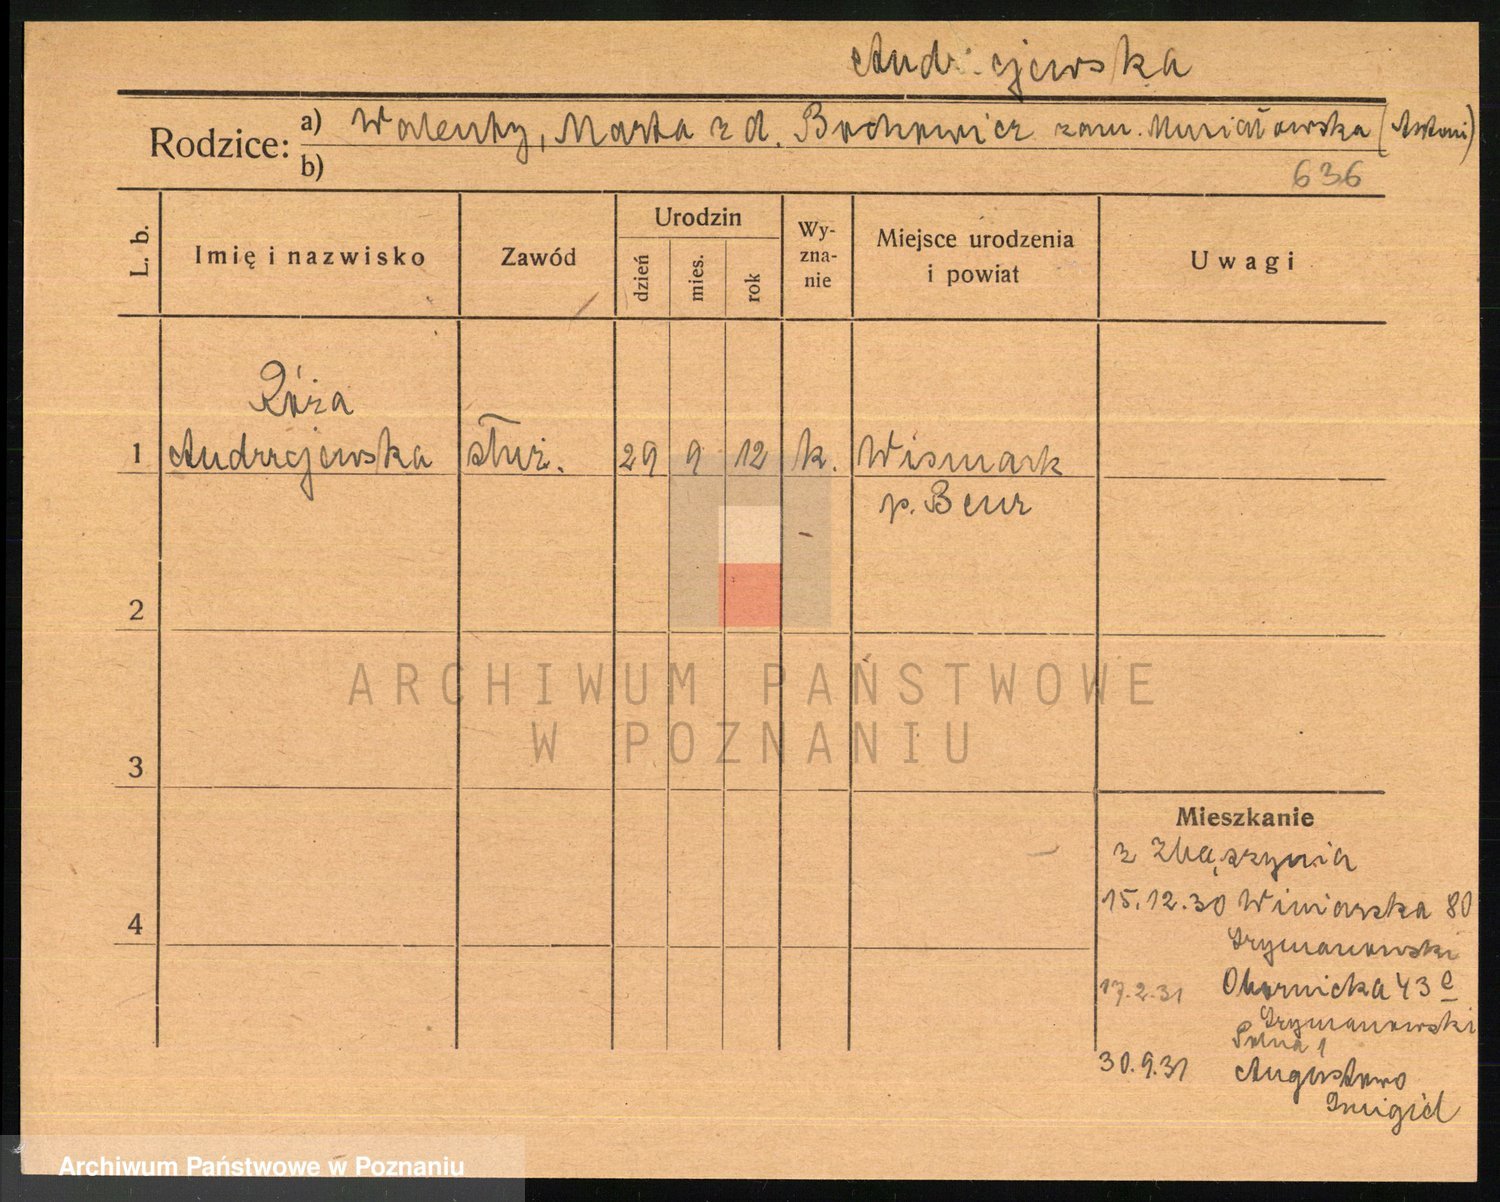 Andrzejewska
Rodzice: a) Walenty, Marta z d. Bochowicz zam. Musiałowska (Antoni)
b)
636
L. b.
Imię i nazwisko
Zawód
Urodzin
dzień
mies.
rok
Wy-
zna-
nie
Miejsce urodzenia
i powiat
Uwagi
Róża
1 Andrzejewska służ. 29 9 12 k. Wismark
p. Beuz
2
ARCHIWUM PAŃSTWOWE
W POZNANIU
3
Mieszkanie
z Zbąszynia
15.12.30 Winiarska 80
Szymanowski
4
17.2.31 Obornicka 43 e
Szymanowski
Polna 1
30.9.31 Augustowo
Śmigiel
Archiwum Państwowe w Poznaniu